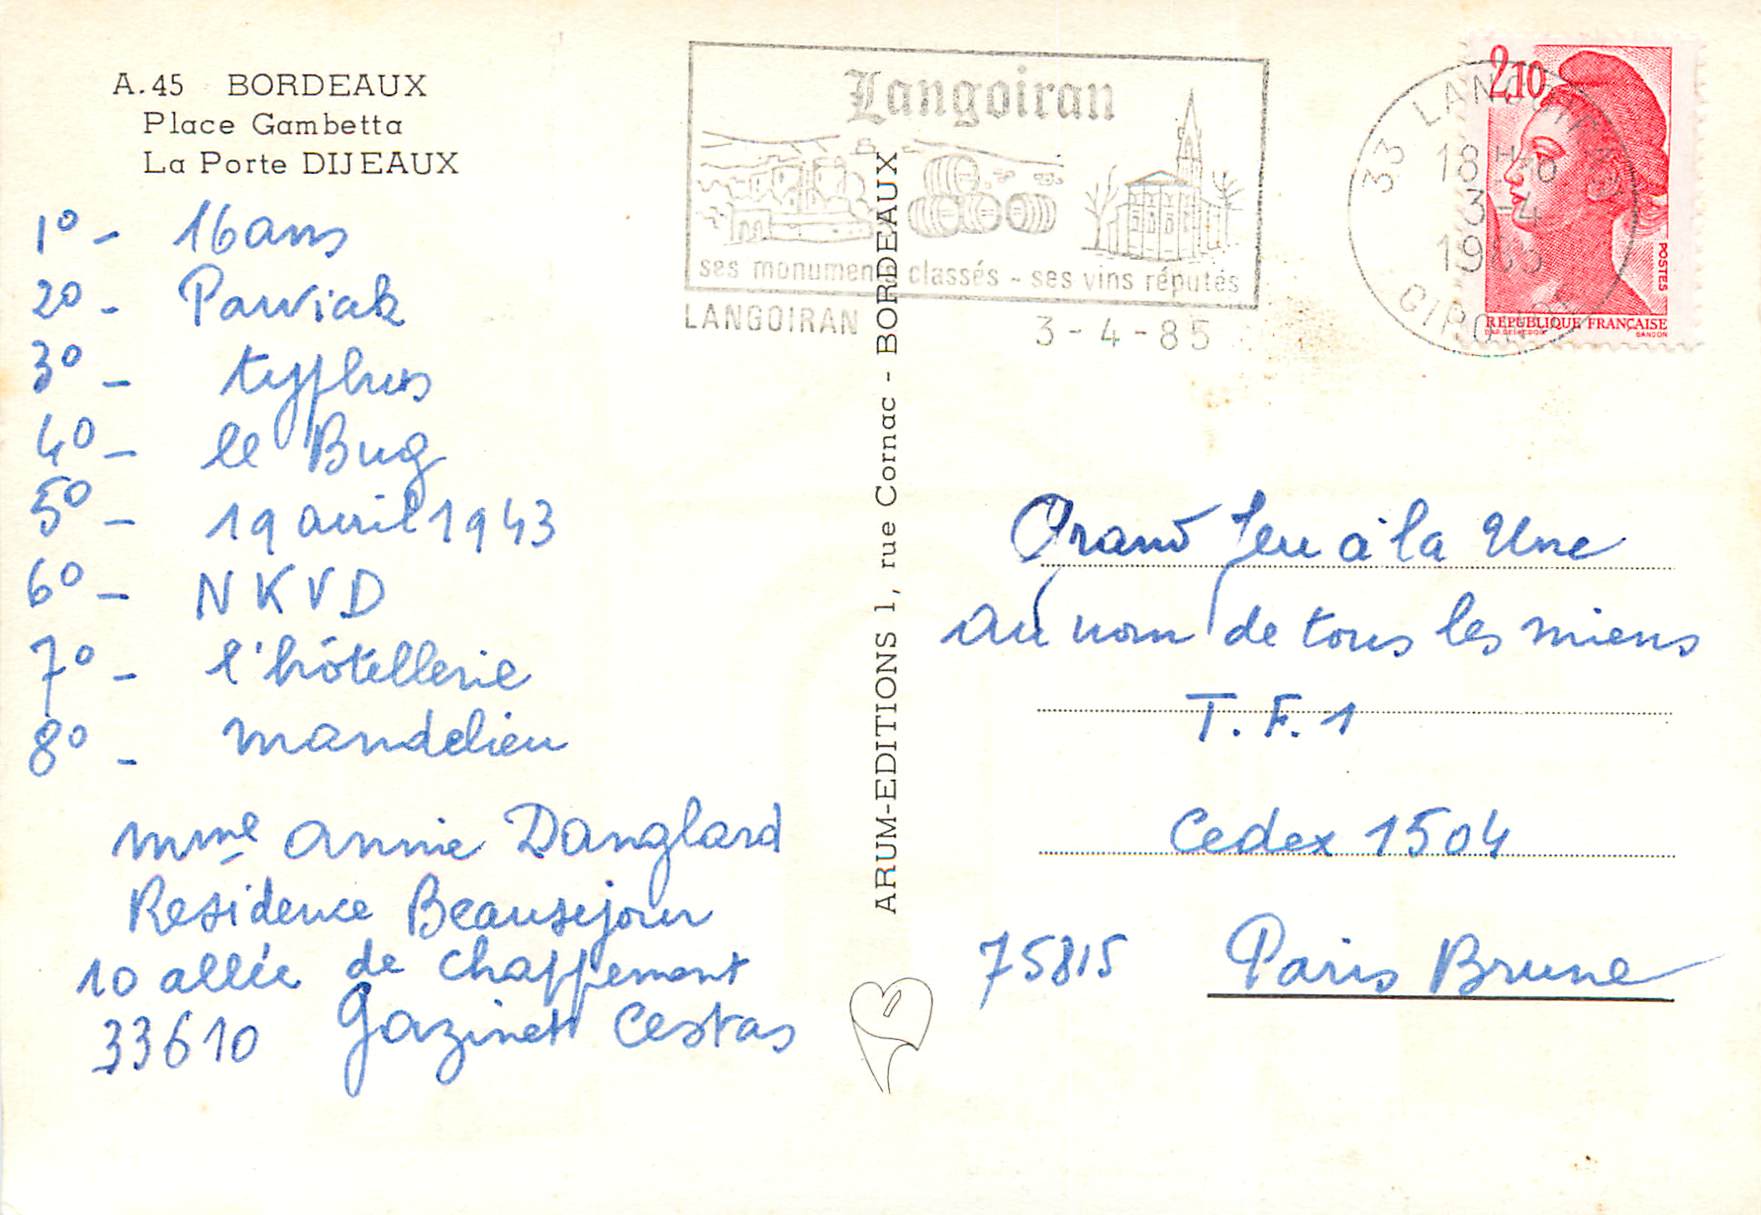 A.45 BORDEAUX
Place Gambetta
La Porte DIJEAUX
1º - 16 ans
2º - Pawiak
3º - typhus
4º - le Bug
5º - 19 avril 1943
6º - NKVD
7º - l'hôtellerie
8º - mandelieu
mme annie Danglard
Residence Beausejour
10 allée de chappement
33610 Gazinet Cestas
ARUM-EDITIONS 1, rue Cornac - BORDEAUX
Langoiran
ses monuments classés - ses vins réputés
LANGOIRAN 3-4-85
33 LANGOIRAN
18H
3-4
1985
GIRONDE
2,10
POSTES
REPUBLIQUE FRANÇAISE
GANDON
Grand Jeu à la Une
au nom de tous les miens
T.F.1
Cedex 1504
75815 Paris Brune